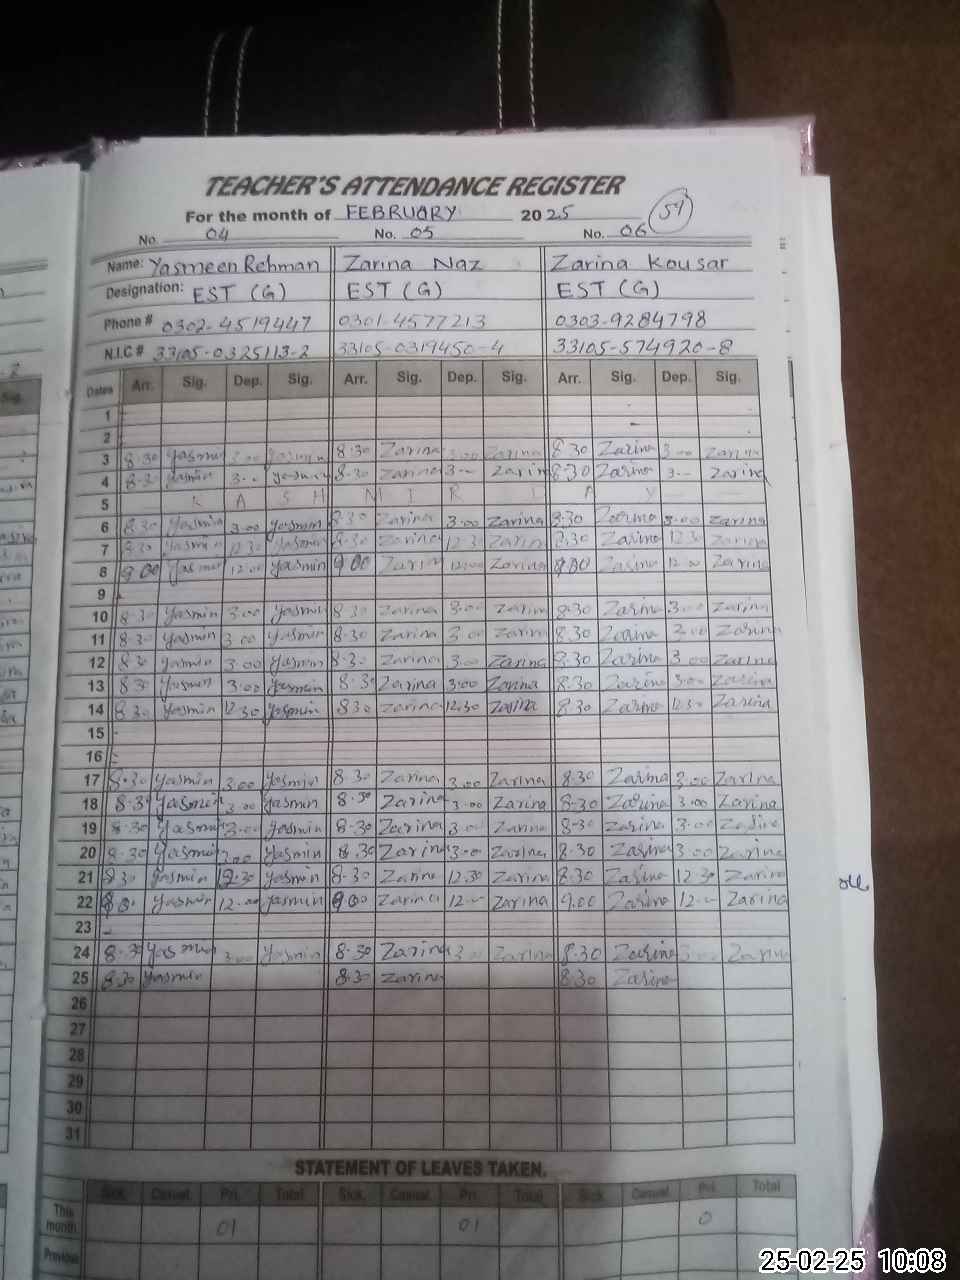 TEACHER'S ATTENDANCE REGISTER
For the month of FEBRUARY 2025 59
No. 04 No. 05 No. 06
Name: Yasmeen Rehman Zarina Naz Zarina Kousar
Designation: EST (G) EST (G) EST (G)
Phone # 0302-4519447 0301-4577213 0303-9284798
N.I.C # 33105-0325113-2 33105-0319450-4 33105-574920-8
Dates Arr. Sig. Dep. Sig. Arr. Sig. Dep. Sig. Arr. Sig. Dep. Sig.
1
2
3 8.30 Yasmin 3.00 Yasmin 8.30 Zarina 3.00 Zarina 8.30 Zarina 3.00 Zarina
4 8.30 Yasmin 3.- Yasmin 8.30 Zarina 3.- Zarina 8.30 Zarina 3.- Zarina
5 K A S H M I R D A Y
6 8.30 Yasmin 3.00 Yasmin 8.30 Zarina 3.00 Zarina 8.30 Zarina 3.00 Zarina
7 8.30 Yasmin 12.30 Yasmin 8.30 Zarina 12.30 Zarina 8.30 Zarina 12.30 Zarina
8 9.00 Yasmin 12.00 Yasmin 9.00 Zarina 12.00 Zarina 9.00 Zarina 12.00 Zarina
9
10 8.30 Yasmin 3.00 Yasmin 8.30 Zarina 3.00 Zarina 8.30 Zarina 3.00 Zarina
11 8.30 Yasmin 3.00 Yasmin 8.30 Zarina 3.00 Zarina 8.30 Zarina 3.00 Zarina
12 8.30 Yasmin 3.00 Yasmin 8.30 Zarina 3.00 Zarina 8.30 Zarina 3.00 Zarina
13 8.30 Yasmin 3.00 Yasmin 8.30 Zarina 3.00 Zarina 8.30 Zarina 3.00 Zarina
14 8.30 Yasmin 12.30 Yasmin 8.30 Zarina 12.30 Zarina 8.30 Zarina 12.30 Zarina
15
16
17 8.30 Yasmin 3.00 Yasmin 8.30 Zarina 3.00 Zarina 8.30 Zarina 3.00 Zarina
18 8.30 Yasmin 3.00 Yasmin 8.30 Zarina 3.00 Zarina 8.30 Zarina 3.00 Zarina
19 8.30 Yasmin 3.00 Yasmin 8.30 Zarina 3.00 Zarina 8.30 Zarina 3.00 Zarina
20 8.30 Yasmin 3.00 Yasmin 8.30 Zarina 3.00 Zarina 8.30 Zarina 3.00 Zarina
21 8.30 Yasmin 12.30 Yasmin 8.30 Zarina 12.30 Zarina 8.30 Zarina 12.30 Zarina
22 Yasmin 12.00 Yasmin 9.00 Zarina 12.- Zarina 9.00 Zarina 12.- Zarina
23
24 8.30 Yasmin 3.00 Yasmin 8.30 Zarina 3.00 Zarina 8.30 Zarina 3.00 Zarina
25 8.30 Yasmin 8.30 Zarina 8.30 Zarina
26
27
28
29
30
31
STATEMENT OF LEAVES TAKEN.
Sick. Casual. Pri. Total Sick. Casual. Pri. Total Sick. Casual. Pri. Total
This month 01 01 0
Previous
25-02-25 10:08